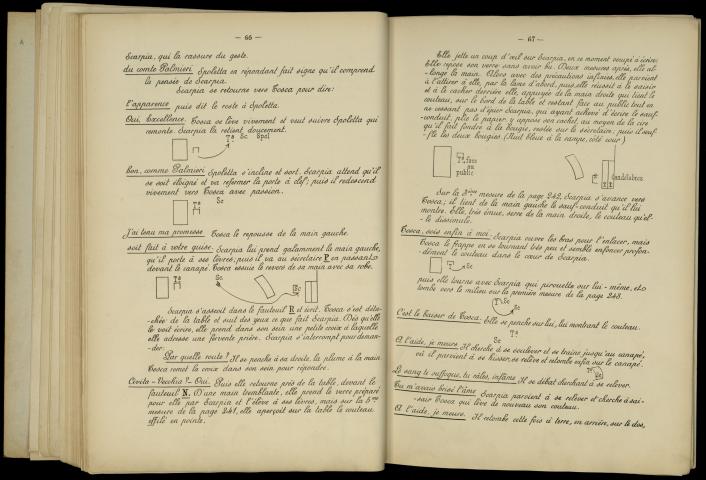 — 66 —
Scarpia, qui la rassure du geste.
du comte Palmieri Spoletta en répondant fait signe qu'il comprend
la pensée de Scarpia.
Scarpia se retourne vers Tosca pour dire:
l'apparence puis dit le reste à Spoletta.
Oui, Excellence. Tosca se lève vivement et veut suivre Spoletta qui
remonte. Scarpia la retient doucement.
Ta Sc Spol
bon, comme Palmieri Spoletta s'incline et sort. Scarpia attend qu'il
se soit éloigné et va refermer la porte à clef; puis il redescend
vivement vers Tosca avec passion.
Ta Sc
J'ai tenu ma promesse Tosca le repousse de la main gauche.
soit fait à votre guise. Scarpia lui prend galamment la main gauche,
qu'il porte à ses lèvres; puis il va au secrétaire P en passant
devant le canapé. Tosca essuie le revers de sa main avec sa robe.
Sc Sc Sc
Scarpia s'asseoit dans le fauteuil R et écrit. Tosca s'est déta-
-chée de la table et suit des yeux ce que fait Scarpia. Dès qu'elle
le voit écrire, elle prend dans son sein une petite croix à laquelle
elle adresse une fervente prière. Scarpia s'interrompt pour deman-
-der:
Par quelle route? Il se penche à sa droite, la plume à la main.
Tosca remet la croix dans son sein pour répondre.
Civita-Vecchia? - Oui. Puis elle retourne près de la table, devant le
fauteuil N. D'une main tremblante, elle prend le verre préparé
pour elle par Scarpia et l'élève à ses lèvres, mais sur la 5me
mesure de la page 241, elle aperçoit sur la table le couteau
effilé en pointe.
— 67 —
Elle jette un coup d'œil sur Scarpia, en ce moment occupé à écrire.
Elle repose son verre sans avoir bu. Deux mesures après, elle al-
-longe la main. Alors avec des précautions infinies, elle parvient
à l'attirer à elle, par la lame d'abord, puis elle réussit à le saisir
et à le cacher derrière elle, appuyée de la main droite qui tient le
couteau, sur le bord de la table et restant face au public tout en
ne cessant pas d'épier Scarpia, qui ayant achevé d'écrire le sauf-
-conduit, plie le papier, y appose son cachet, au moyen de la cire
qu'il fait fondre à la bougie, restée sur le secrétaire; puis il souf-
-fle les deux bougies. (Nuit bleue à la rampe, côté cour)
Ta face
au
public
Candélabres
Sur la 3ème mesure de la page 242, Scarpia s'avance vers
Tosca; il tient de la main gauche le sauf-conduit qu'il lui
montre. Elle, très émue, serre de la main droite, le couteau qu'el-
-le dissimule.
Tosca, sois enfin à moi. Scarpia ouvre les bras pour l'enlacer, mais
Tosca le frappe en se tournant très peu et semble enfoncer profon-
-dément le couteau dans le cœur de Scarpia
Sc
puis elle tourne avec Scarpia qui pirouette sur lui-même, et
tombe vers le milieu sur la première mesure de la page 243.
Sc
C'est le baiser de Tosca. Elle se penche sur lui, lui montrant le couteau.
Sc Ta
A l'aide, je meurs. Il cherche à se soulever et se traîne jusqu'au canapé,
où il parvient à se hisser, se relève et retombe enfin sur le canapé.
Sc
Le sang te suffoque, tu râles, infâme Il se débat cherchant à se relever.
Tu m'avais brisé l'âme Scarpia parvient à se relever et cherche à sai-
-sir Tosca qui lève de nouveau son couteau.
A l'aide, je meurs. Il retombe cette fois à terre, en arrière, sur le dos,